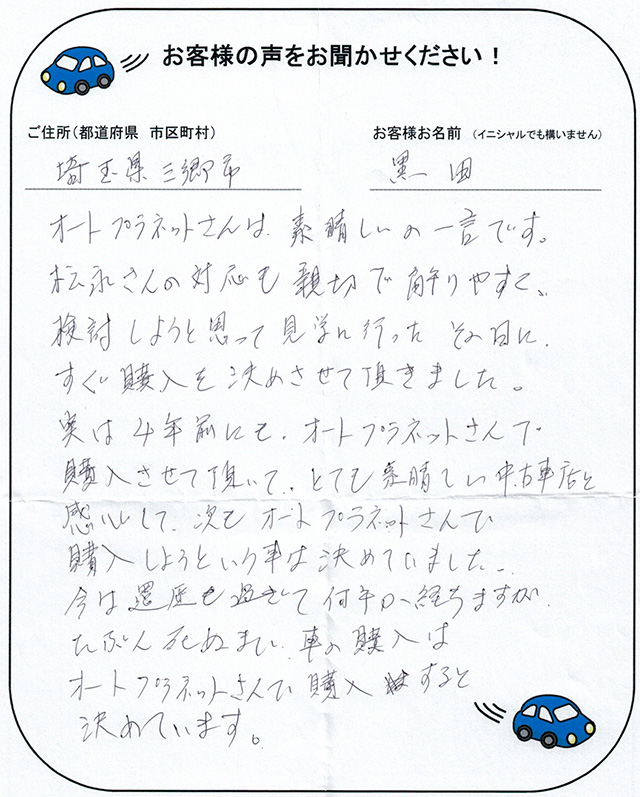 お客様の声をお聞かせください！
ご住所（都道府県　市区町村）
お客様お名前（イニシャルでも構いません）
埼玉県三郷市
黒田
オートプラネットさんは、素晴しいの一言です。
松永さんの対応も親切で解りやすく、
検討しようと思って見学に行ったその日に、
すぐ購入を決めさせて頂きました。
実は４年前にも、オートプラネットさんで
購入させて頂いて、とても素晴しい中古車店と
感心して、次もオートプラネットさんで
購入しようという事は決めていました。
今は還暦も過ぎて何年か経ちますが、
たぶん死ぬまで、車の購入は
オートプラネットさんで購入すると
決めています。